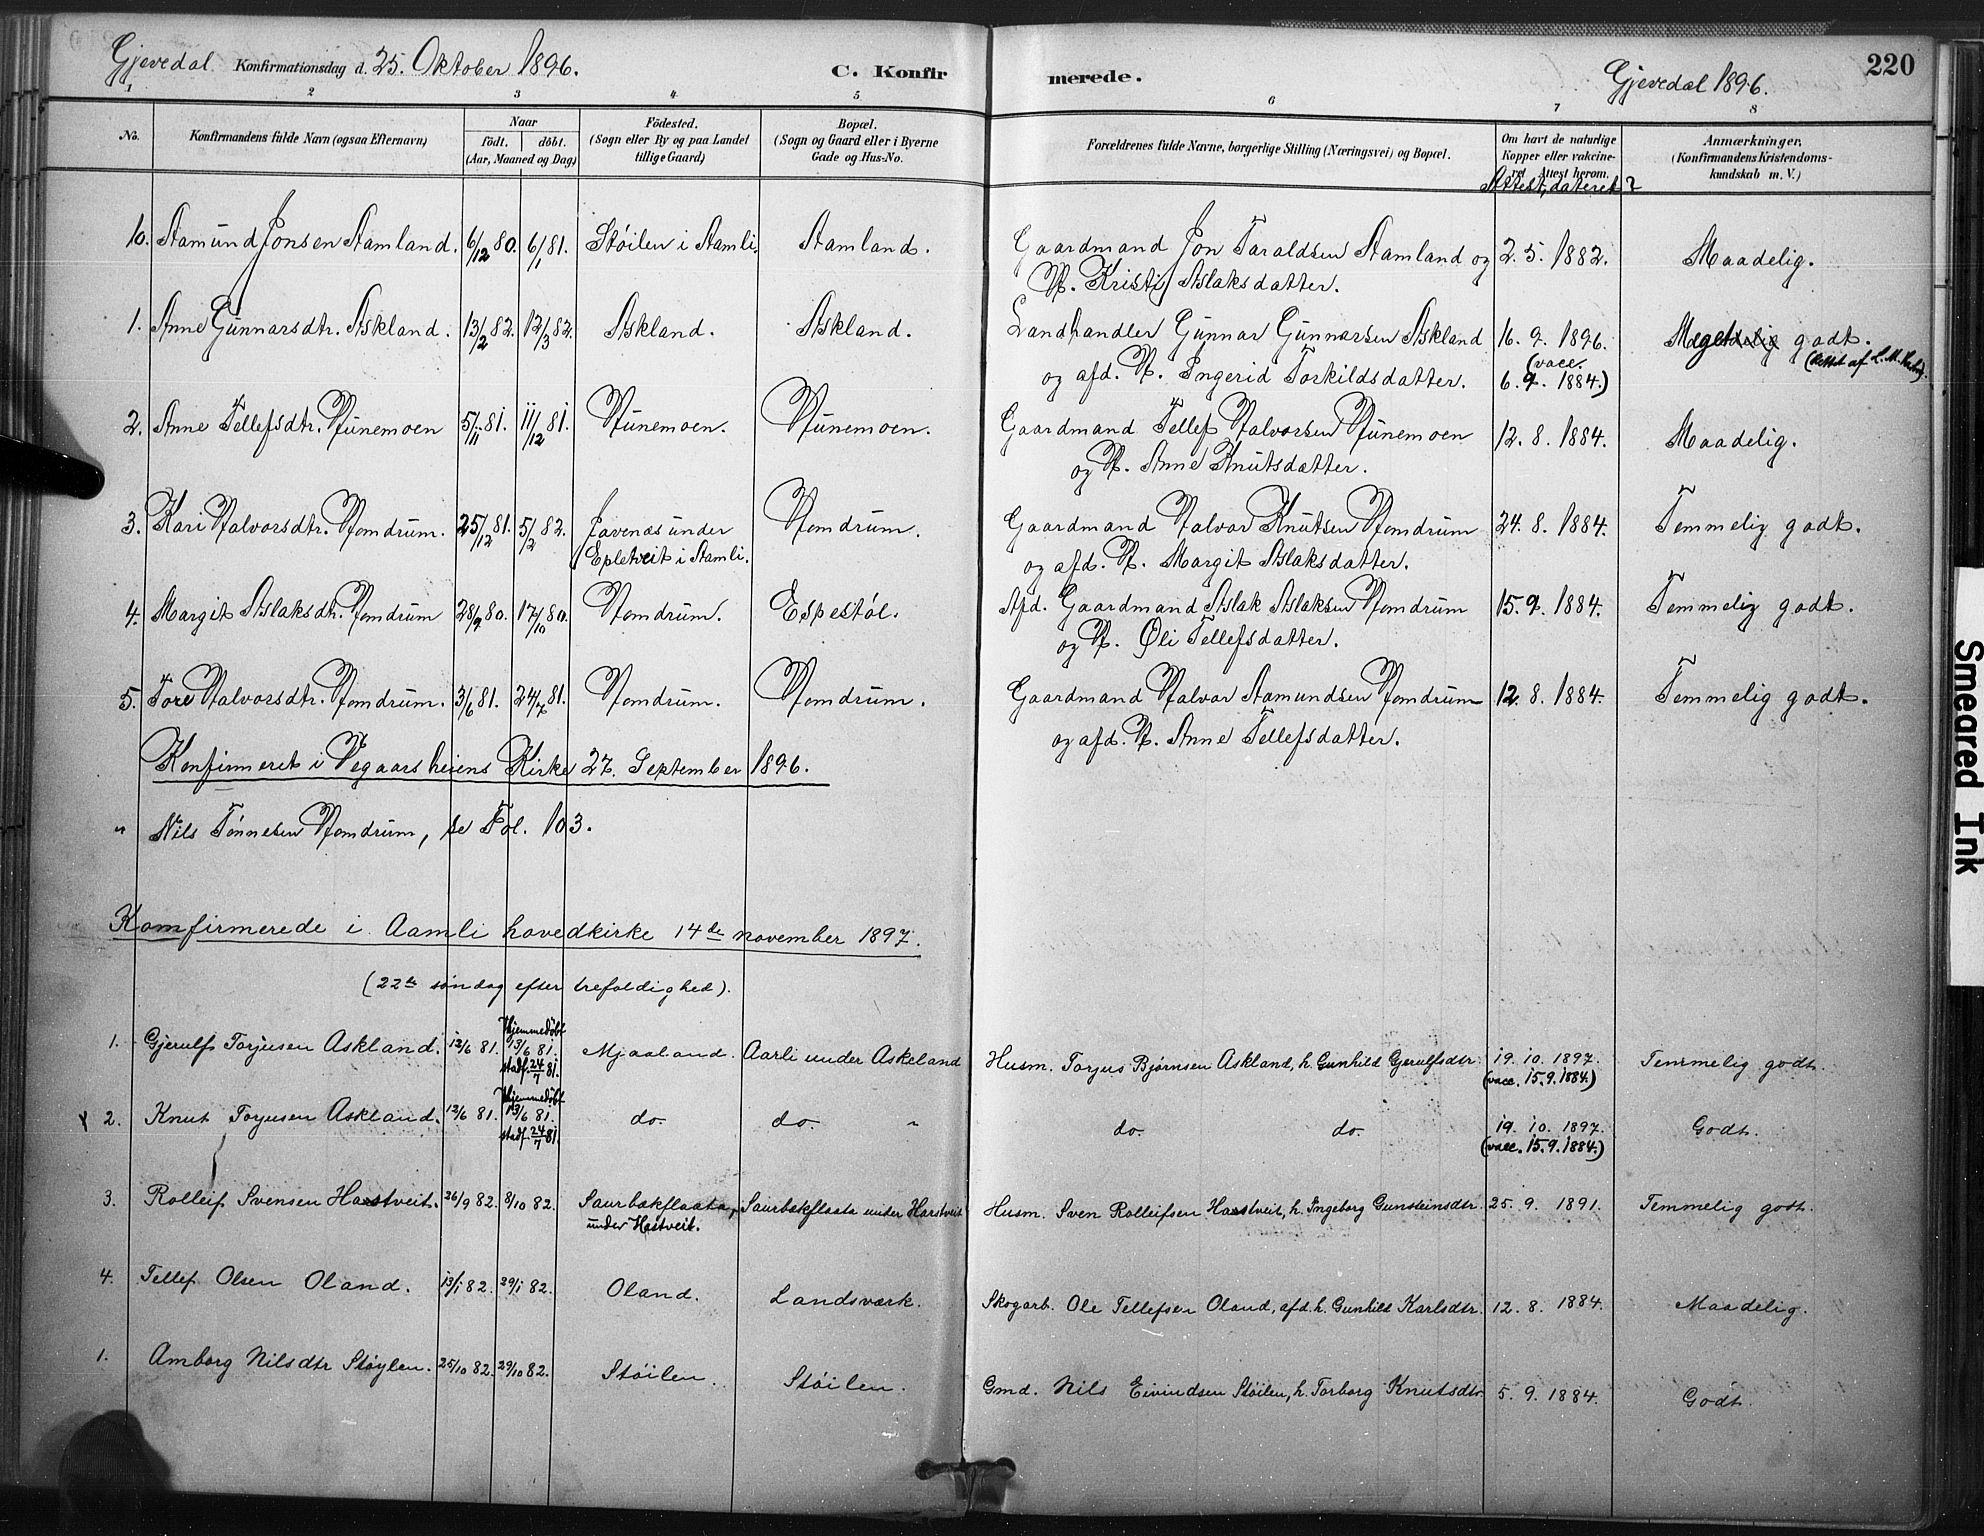 Gjevedal. Konfirmationsdag d. 25. Oktober 1896. C. Konfirmerede. Gjevedal 1896. 220
1 2 3 4 5 6 7 8
No. Konfirmandens fulde Navn (ogsaa Efternavn) Naar födt. döbt. (Aar, Maaned og Dag) Födested. (Sogn eller By og paa Landet tillige Gaard) Bopæl. (Sogn og Gaard eller i Byerne Gade og Hus-No. Forældrenes fulde Navne, borgerlige Stilling (Næringsvei) og Bopæl. Om havt de naturlige Kopper eller vakcineret. Attest herom. Anmærkninger. (Konfirmandens Kristendomskundskab m. V.)
Attest, dateret?
10. Aamund Jonsen Aamland. 6/12 80. 6/1 81. Støilen i Aamli. Aamland. Gaardmand Jon Taraldsen Aamland og 2. 5. 1882. Maadelig.
H. Kristi Aslaksdatter.
1. Anne Gunnarsdtr. Askland. 13/2 82. 12/3 82. Askland. Askland. Landhandler Gunnar Gunnarsen Askland 16. 9. 1896. Meget godt.
og afd. H. Ingerid Torkildsdatter. (vacc. 6. 9. 1884.) (rettet af
2. Anne Tellefsdtr. Hunemoen 5/11 81. 11/12 81. Hunemoen. Hunemoen. Gaardmand Tellef Halvorsen Hunemoen 12. 8. 1884. Maadelig.
og H. Anne Knutsdatter.
3. Kari Halvorsdtr. Homdrum. 25/12 81. 5/2 82. Javenæs under Homdrum. Gaardmand Halvor Knutsen Homdrum 24. 8. 1884. Temmelig godt.
Epletveit i Aamli. og afd. H. Margit Aslaksdatter.
4. Margit Aslaksdtr. Homdrum 28/9 80. 17/10 80. Homdrum. Espestøl. Afd. Gaardmand Aslak Aslaksen Homdrum 15. 9. 1884. Temmelig godt.
og H. Øli Tellefsdatter.
5. Tore Halvorsdtr. Homdrum. 3/6 81. 24/7 81. Homdrum. Homdrum. Gaardmand Halvor Aamundsen Homdrum 12. 8. 1884. Temmelig godt.
og afd. H. Anne Tellefsdatter.
Konfirmeret i Vegaarsheiens Kirke 27. September 1896.
" Nils Tønnesen Homdrum, se Fol. 103.
Komfirmerede i Aamli hovedkirke 14de november 1897.
(22de søndag efter trefoldighed).
1. Gjerulf Torjusen Askland. 13/6 81. Hjemmedøbt 13/6 81. stadf. 24/7 81. Mjaaland. Aarli under Askeland Husm. Torjus Bjørnsen Askland, h. Gunhild Gjerulfsdtr. 19. 10. 1897. (vacc. 15. 9. 1884.) Temmelig godt.
2. Knut Torjusen Askland. 13/6 81. Hjemmedøbt 13/6 81. stadf. 24/7 81. do. do. " do. do. 19. 10. 1897. (vacc. 15. 9. 1884.) Godt.
3. Rolleif Svensen Harstveit. 26/9 82. 8/10 82. Saurbækflaata, Saurbækflaata under Harstveit Husm. Sven Rolleifsen Harstveit, h. Ingeborg Gunsteinsdtr. 25. 9. 1891. Temmelig godt.
under Hastveit.
4. Tellef Olsen Oland. 13/1 82. 29/1 82. Oland. Landsværk. Skogarb. Ole Tellefsen Oland, afd. h. Gunhild Karlsdtr. 12. 8. 1884. Maadelig.
1. Amborg Nilsdtr Støylen. 25/10 82. 29/10 82. Støilen. Støilen. Gmd. Nils Eivindsen Støilen, h. Torborg Knutsdtr. 5. 9. 1884. Godt.
Smeared Ink